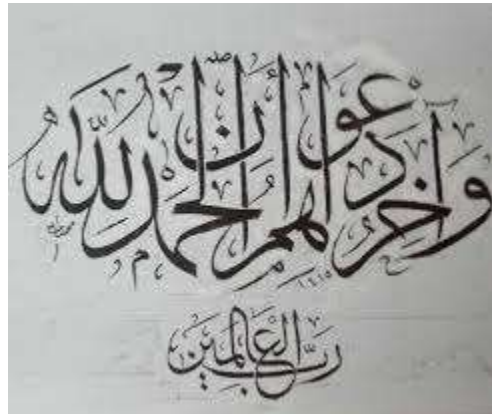 وَآخِرُ دَعْوَاهُمْ أَنِ الْحَمْدُ لِلّٰهِ
رَبِّ الْعَالَمِينَ